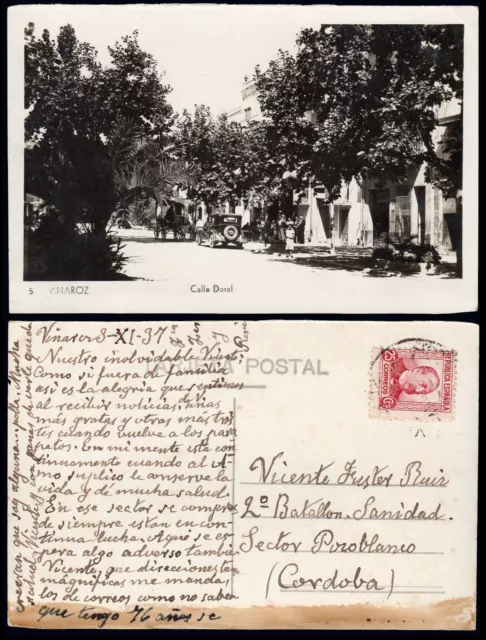 5 VINAROZ
Calle Doral
TARJETA POSTAL
REPUBLICA ESPAÑOLA
CORREOS
25
CTS
Vinaroz 8-XI-37
Nuestro inolvidable Vicente
Como si fuera de familia
así es la alegria que sentimos
al recibir noticias, unas
más gratas y otras más tris
tes cuando vuelve a los
En mi mente esta con
tinuamente cuando al
mo suplico le conserve la
vida y de mucha salud.
En ese sector se compren
de siempre estan en con
tinua lucha. Aquí se es
pera algo adverso tambien
Vicente, que direcciones tan
magníficas me manda,
los de correos como no saben
que tengo 76 años se
creeran que soy alguna polla.
Vicente Fuster Ruiz
2º Batallon Sanidad.
Sector Pozoblanco
(Cordoba)